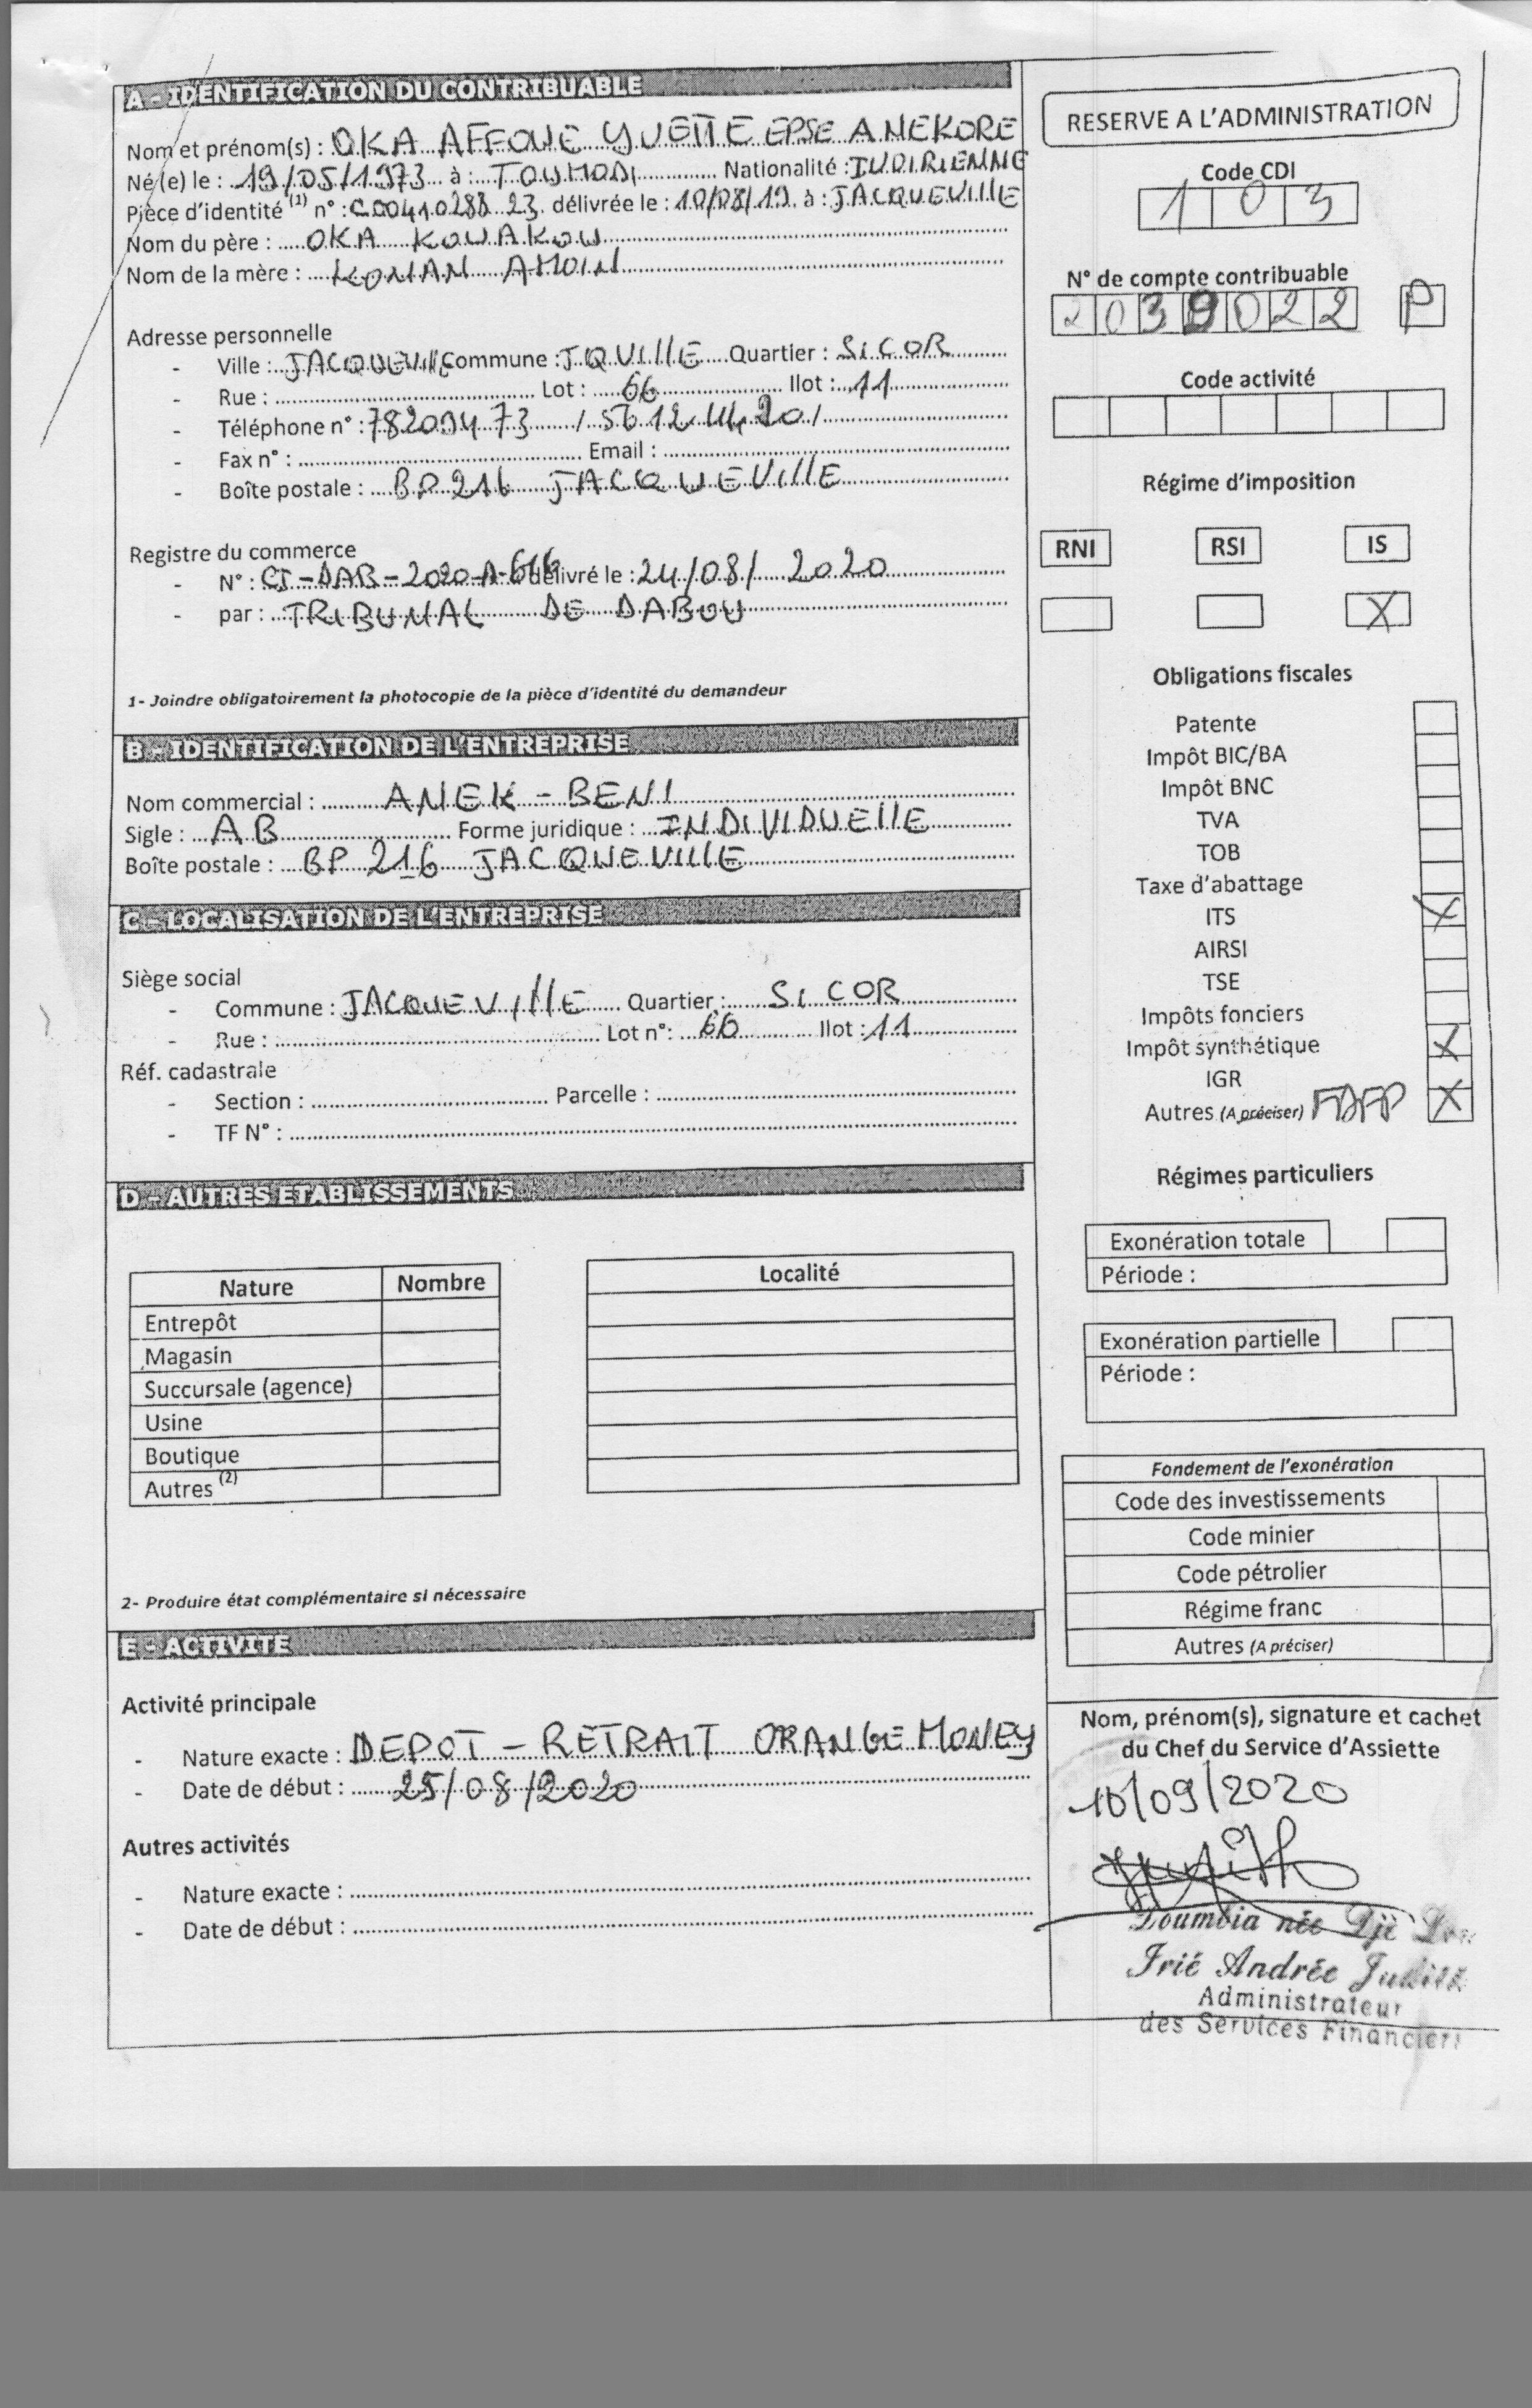 A - IDENTIFICATION DU CONTRIBUABLE
Nom et prénom(s) : OKA AFFOUE YVETTE EPSE ANEKORE
Né(e) le : 19/05/1973 à : TOUMODI Nationalité : IVOIRIENNE
Pièce d'identité (1) n° : C00410288 23 délivrée le : 10/08/19 à : JACQUEVIllE
Nom du père : OKA KOUAKOU
Nom de la mère : KONAN AMOIN
Adresse personnelle
- Ville : JACQUEVIllE Commune : JQVIllE Quartier : SiCOR
- Rue : Lot : 66 Ilot : 11
- Téléphone n° : 78209473 / 56 12 44 20 /
- Fax n° : Email :
- Boîte postale : BP 216 JACQUEVIllE
Registre du commerce
- N° : CI-DAB-2020-A-616 délivré le : 24/08/2020
- par : TRIBUNAL DE DABOU
1- Joindre obligatoirement la photocopie de la pièce d'identité du demandeur
B - IDENTIFICATION DE L'ENTREPRISE
Nom commercial : ANEK - BENI
Sigle : AB Forme juridique : INDIVIDUEllE
Boîte postale : BP 216 JACQUEVIllE
C - LOCALISATION DE L'ENTREPRISE
Siège social
- Commune : JACQUEVIllE Quartier : Si COR
- Rue : Lot n° : 66 Ilot : 11
Réf. cadastrale
- Section : Parcelle :
- TF N° :
D - AUTRES ETABLISSEMENTS
Nature Nombre Localité
Entrepôt
Magasin
Succursale (agence)
Usine
Boutique
Autres (2)
2- Produire état complémentaire si nécessaire
E - ACTIVITE
Activité principale
- Nature exacte : DEPOT - RETRAIT ORANGE MONEY
- Date de début : 25/08/2020
Autres activités
- Nature exacte :
- Date de début :
RESERVE A L'ADMINISTRATION
Code CDI
1 0 3
N° de compte contribuable
2 0 3 9 0 2 2 P
Code activité
Régime d'imposition
RNI RSI IS
X
Obligations fiscales
Patente
Impôt BIC/BA
Impôt BNC
TVA
TOB
Taxe d'abattage
ITS X
AIRSI
TSE
Impôts fonciers
Impôt synthétique X
IGR
Autres (A préciser) FDFP X
Régimes particuliers
Exonération totale
Période :
Exonération partielle
Période :
Fondement de l'exonération
Code des investissements
Code minier
Code pétrolier
Régime franc
Autres (A préciser)
Nom, prénom(s), signature et cachet
du Chef du Service d'Assiette
10/09/2020
Doumbia née Djè
Irié Andrée Judith
Administrateur
des Services Financiers